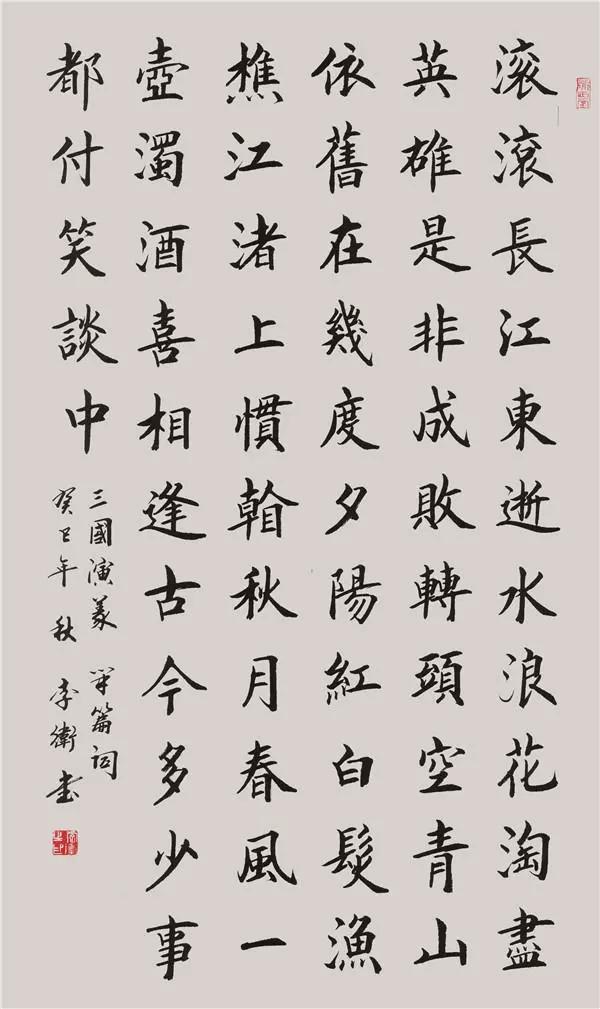 滚滾長江東逝水浪花淘盡
英雄是非成敗轉頭空青山
依舊在幾度夕陽紅白髮漁
樵江渚上慣看秋月春風一
壺濁酒喜相逢古今多少事
都付笑談中
三國演義 篇詞
癸巳年秋 李衛书